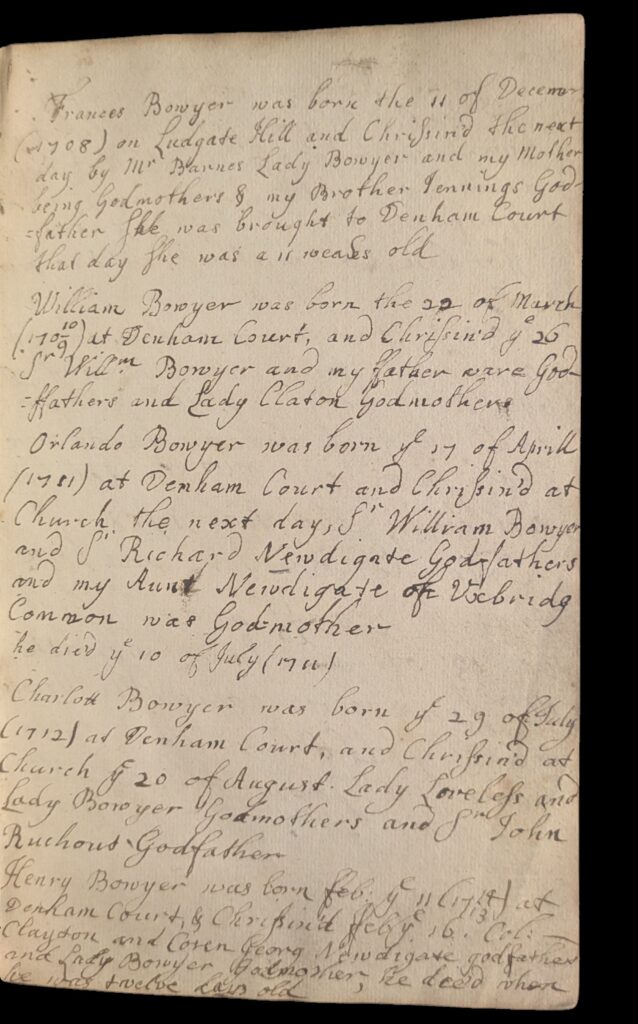 Frances Bowyer was born the 11 of Decemer
(1708) on Ludgate Hill and Chrissin'd the next
day by Mr Barnes Lady Bowyer and my Mother
being Godmothers & my Brother Jennings God-
=father She was brought to Denham Court
that day she was a 11 weaks old
William Bowyer was born the 22 of March
(170 10/9) at Denham Court, and Chrissin'd ye 26
Sr Willm Bowyer and my father ware God-
=ffathers and Lady Claton Godmother
Orlando Bowyer was born ye 17 of Aprill
(1711) at Denham Court and Chrissin'd at
Church the next day, Sr William Bowyer
and Sr Richard Newdigate Godfathers
and my Aunt Newdigate of Vxbridg
Common was Godmother
he died ye 10 of July (1711)
Charlott Bowyer was born ye 29 of July
(1712) at Denham Court, and Chrissin'd at
Church ye 20 of August. Lady Loveless and
Lady Bowyer Godmothers and Sr John
Ruchout Godfather
Henry Bowyer was born feb: ye 11 (17 14/13) at
Denham Court, & Chrissin'd feb ye 16. Col:
Clayton and Cosen Georg Newdigate godfathers
and Lady Bowyer Godmother, he died when
he was twelve days old